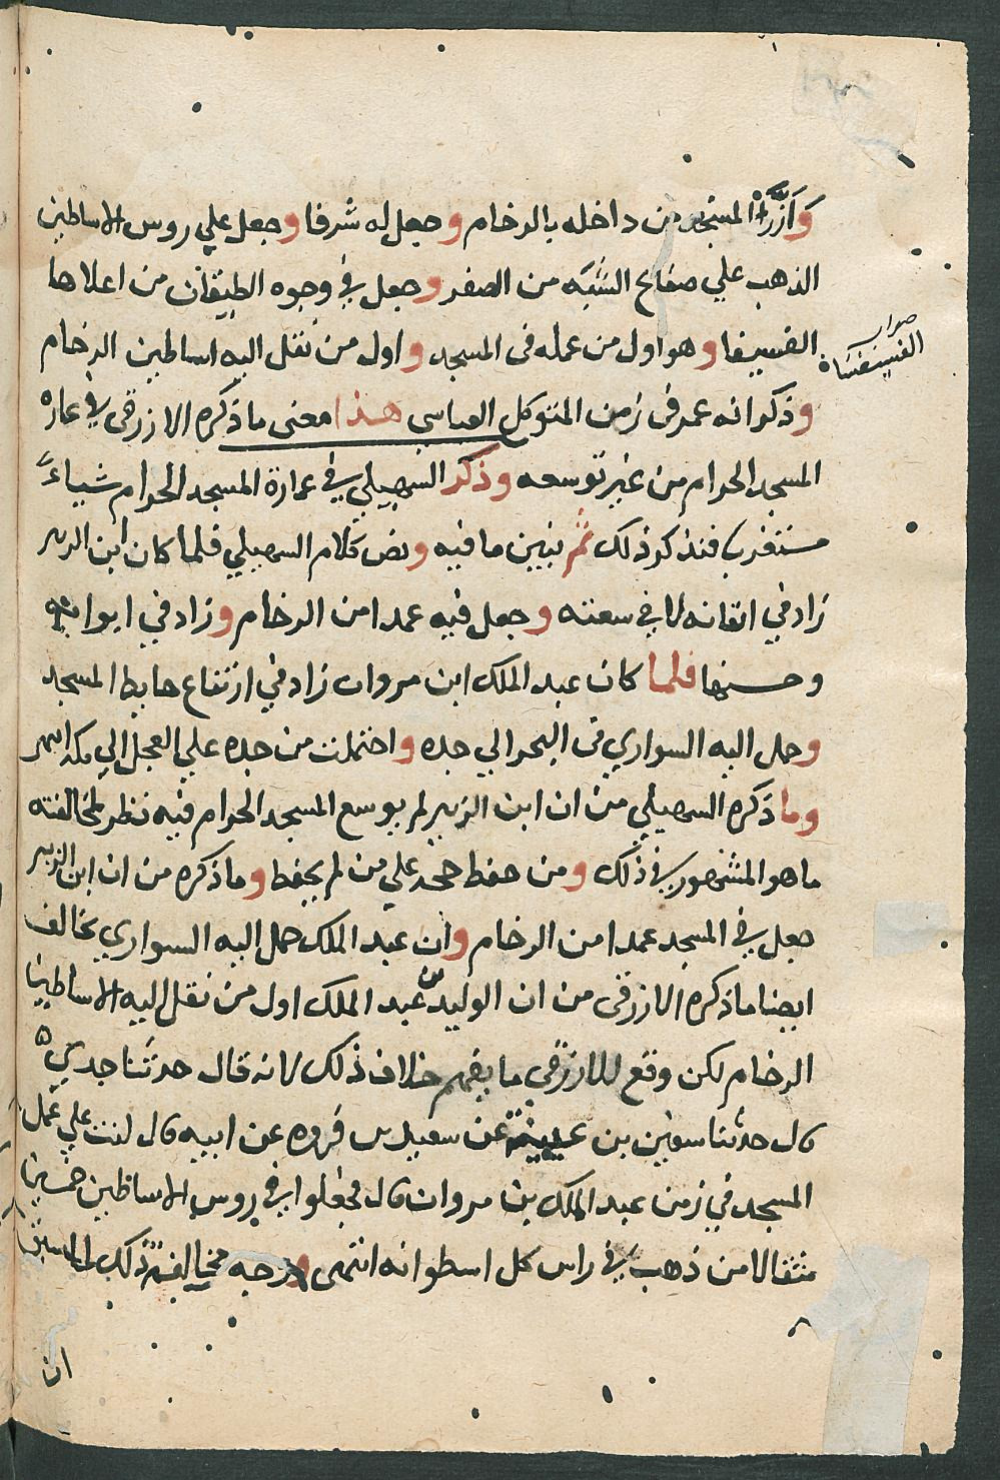 وَأزّر المسجد من داخله بالرخام وجعل له شرفا وجعل علي روس الاساطين
الذهب علي صفايح الشبَه من الصفر وجعل في وجوه الطيقان من اعلاها
الفسيفا وهو اول من عمله فى المسجد واول من نقل اليه اساطين الرخام
صواب
الفسيفساه
وذكر انه عمر فى زمن المتوكل العباسى هذا معنى ما ذكره الازرقى في عماره
المسجد الحرام من غير توسعه وذكر السهيلي في عمارة المسجد الحرام شياءً
مستغرب فنذكر ذلك ثم نبين ما فيه ونص كلام السهيلي فلما كان ابن الزبير
زاد في اتقانه لا في سعته وجعل فيه عمدا من الرخام وزاد في ابوابه
وحسنها فلما كان عبد الملك ابن مروان زاد في ارتفاع حايط المسجد
وحمل اليه السواري في البحر الي جده واحتملت من جده علي العجل الي مكه انتهى
وما ذكره السهيلي من ان ابن الزبير لم يوسع المسجد الحرام فيه نظر لمخالفته
ما هو المشهور في ذلك ومن حفظ حجه علي من لم يحفظ وما ذكره من ان ابن الزبير
جعل في المسجد عمدا من الرخام وان عبد الملك حمل اليه السواري يخالف
ايضا ما ذكره الازرقى من ان الوليد بن عبد الملك اول من نقل اليه الاساطين
الرخام لكن وقع للازرقي ما يفهم خلاف ذلك لانه قال حدثنا جدي
قال حدثنا سفين بن عيينه عن سعيد بن فروه عن ابيه قال كنت علي عمل
المسجد في زمن عبد الملك بن مروان قال فجعلوا في روس الاساطين خمسين
مثقالا من ذهب في راس كل اسطوانه انتهى ووجه مخالفة ذلك لما سبق
ان